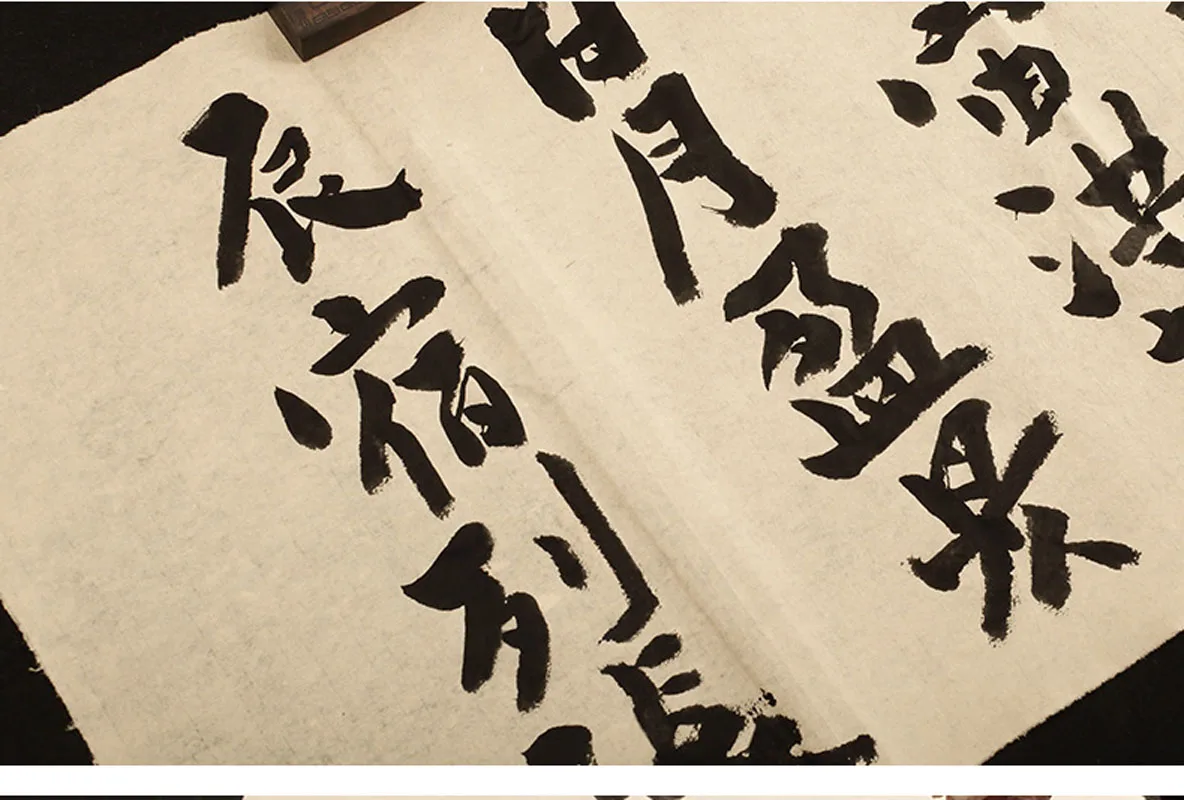 宙洪
日月盈昃
辰宿列張